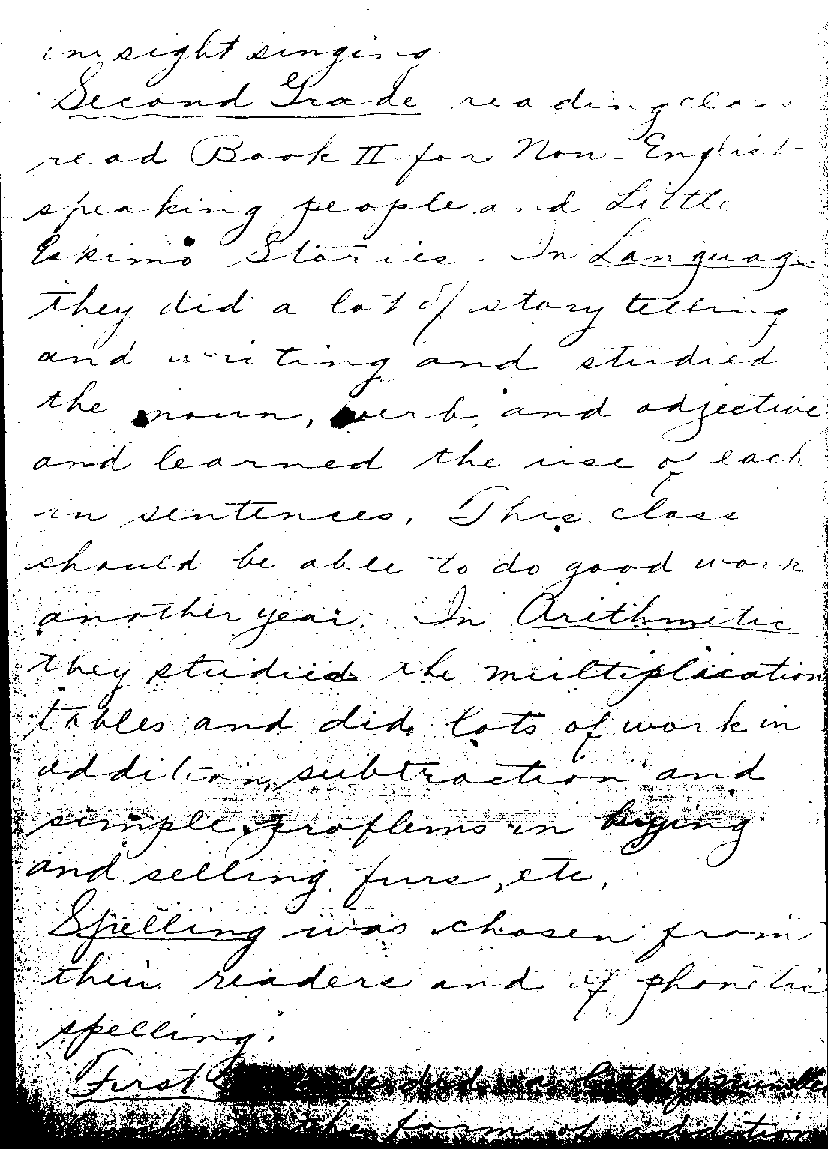 in sight singing
Second Grade reading class
read Book II for Non-English
speaking people and Little
Eskimo Stories. In Language
they did a lot of story telling
and writing and studied
the noun, verb, and adjective
and learned the use of each
in sentences. This class
should be able to do good work
another year. In Arithmetic
they studied the multiplication
tables and did lots of work in
addition, subtraction and
simple problems in buying
and selling furs, etc.
Spelling was chosen from
their readers and of phonetic
spelling.
First did a lot of number
work in the form of addition